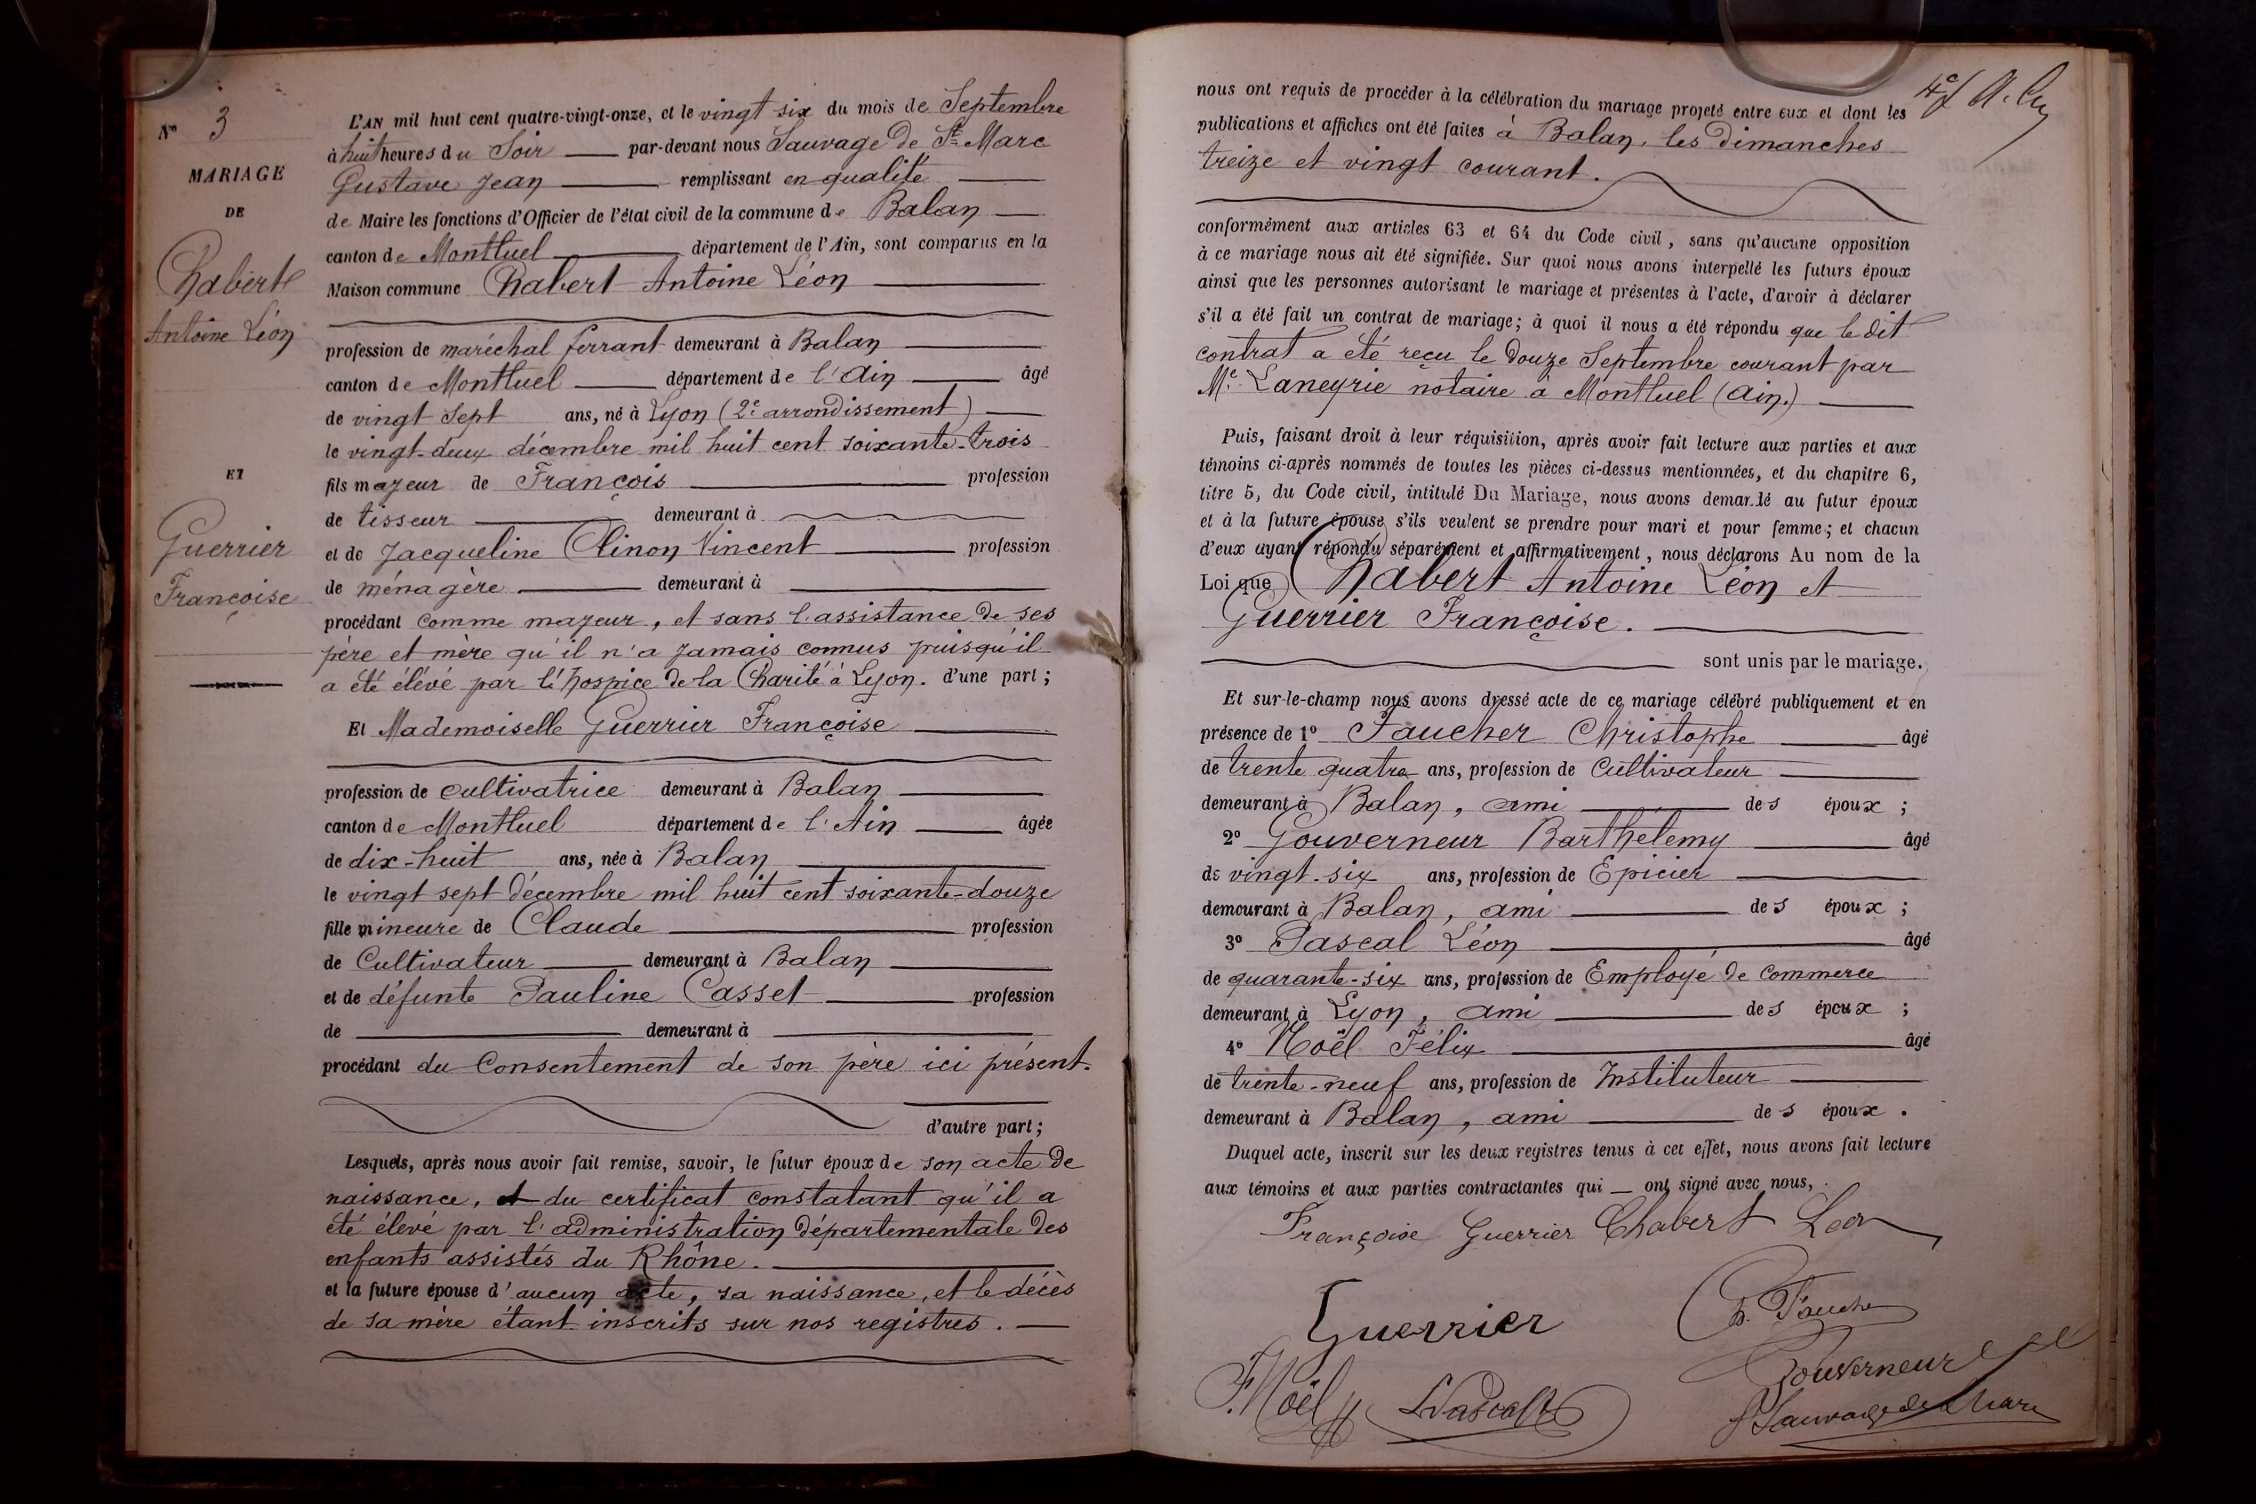 N° 3
MARIAGE
DE
Chabert
Antoine Léon
ET
Guerrier
Françoise
L'AN mil huit cent quatre-vingt-onze, et le vingt six du mois de Septembre
à huit heures du Soir par-devant nous Sauvage de St Marc
Gustave Jean remplissant en qualité
de Maire les fonctions d'Officier de l'état civil de la commune de Balan
canton de Montluel département de l'Ain, sont comparus en la
Maison commune Chabert Antoine Léon
profession de maréchal ferrant demeurant à Balan
canton de Montluel département de l'Ain âgé
de vingt sept ans, né à Lyon (2e arrondissement)
le vingt-deux décembre mil huit cent soixante-trois
fils majeur de François profession
de tisseur demeurant à
et de Jacqueline Clinon Vincent profession
de ménagère demeurant à
procédant comme majeur, et sans l'assistance de ses
père et mère qu'il n'a jamais connus puisqu'il
a été élévé par l'hospice de la Charité à Lyon. d'une part;
Et Mademoiselle Guerrier Françoise
profession de cultivatrice demeurant à Balan
canton de Montluel département de l'Ain âgée
de dix-huit ans, née à Balan
le vingt sept décembre mil huit cent soixante-douze
fille mineure de Claude profession
de Cultivateur demeurant à Balan
et de défunte Pauline Casset profession
de demeurant à
procédant du Consentement de son père ici présent.
d'autre part;
Lesquels, après nous avoir fait remise, savoir, le futur époux de son acte de
naissance, et du certificat constatant qu'il a
été élevé par l'administration départementale des
enfants assistés du Rhône.
et la future épouse d'aucun acte, sa naissance, et le décès
de sa mère étant inscrits sur nos registres.
nous ont requis de procéder à la célébration du mariage projeté entre eux et dont les
publications et affiches ont été faites à Balan, les dimanches
treize et vingt courant.
conformément aux articles 63 et 64 du Code civil, sans qu'aucune opposition
à ce mariage nous ait été signifiée. Sur quoi nous avons interpellé les futurs époux
ainsi que les personnes autorisant le mariage et présentes à l'acte, d'avoir à déclarer
s'il a été fait un contrat de mariage; à quoi il nous a été répondu que le dit
contrat a été reçu le douze Septembre courant par
Me Laneyrie notaire à Montluel (Ain.)
Puis, faisant droit à leur réquisition, après avoir fait lecture aux parties et aux
témoins ci-après nommés de toutes les pièces ci-dessus mentionnées, et du chapitre 6,
titre 5, du Code civil, intitulé Du Mariage, nous avons demandé au futur époux
et à la future épouse s'ils veulent se prendre pour mari et pour femme; et chacun
d'eux ayant répondu séparément et affirmativement, nous déclarons Au nom de la
Loi que Chabert Antoine Léon et
Guerrier Françoise.
sont unis par le mariage.
Et sur-le-champ nous avons dressé acte de ce mariage célébré publiquement et en
présence de 1° Faucher Christophe âgé
de trente quatre ans, profession de Cultivateur
demeurant à Balan, ami des époux;
2° Gouverneur Barthélemy âgé
de vingt-six ans, profession de Epicier
demeurant à Balan, ami des époux;
3° Pascal Léon âgé
de quarante-six ans, profession de Employé de Commerce
demeurant à Lyon, ami des époux;
4° Noël Félix âgé
de trente-neuf ans, profession de Instituteur
demeurant à Balan, ami des époux.
Duquel acte, inscrit sur les deux registres tenus à cet effet, nous avons fait lecture
aux témoins et aux parties contractantes qui ont signé avec nous,
Françoise Guerrier Chabert Leon
Guerrier Ch. Faucher
Gouverneur
F. Noël L Pascal
Sauvage de St Marc